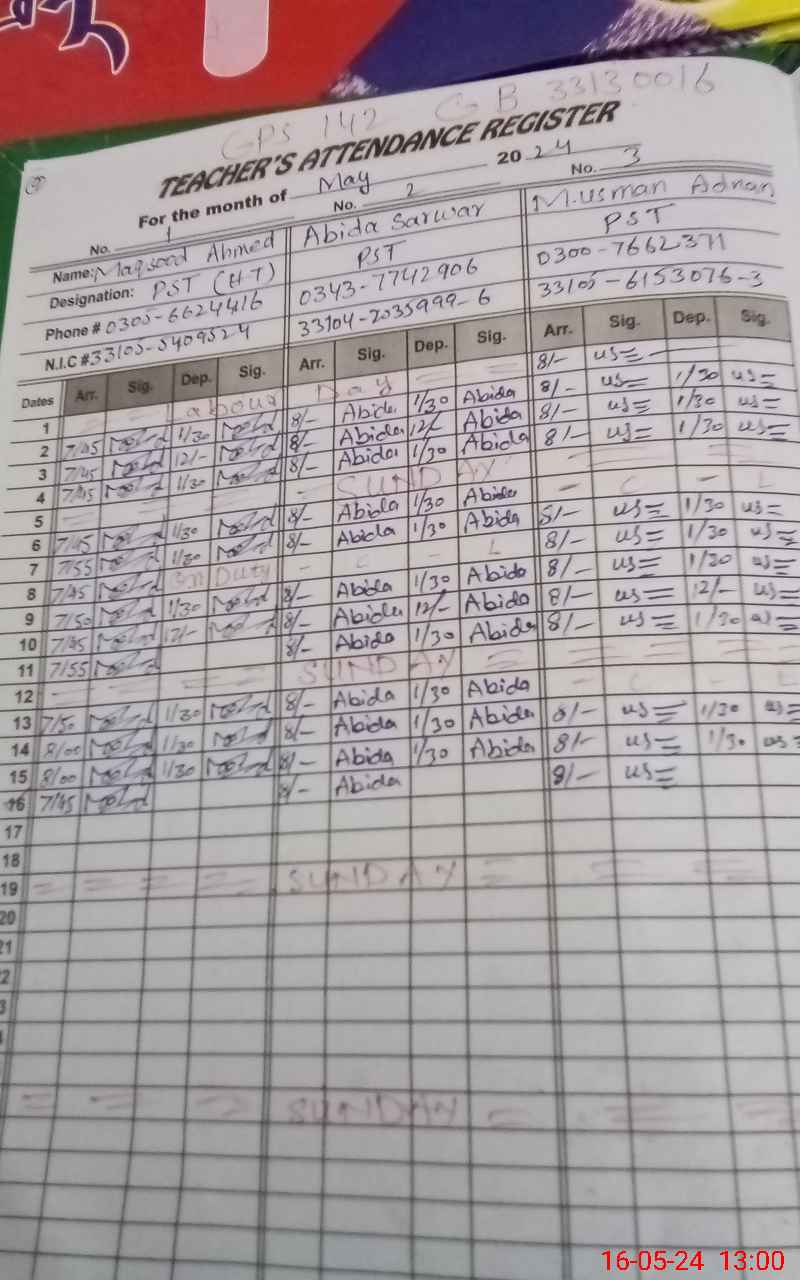 GPS 142 GB 33130016
TEACHER'S ATTENDANCE REGISTER
For the month of May 2024
No. 1 No. 2 No. 3
Name: Maqsood Ahmed Abida Sarwar M.usman Adnan
Designation: PST (H-T) PST PST
Phone # 0305-6624416 0343-7742906 0300-7662371
N.I.C # 33105-5409524 33104-2035999-6 33105-6153076-3
Dates Arr. Sig. Dep. Sig. Arr. Sig. Dep. Sig. Arr. Sig. Dep. Sig.
1 Labour Day 8/- us=
2 7/45 1/30 8/- Abida 1/30 Abida 8/- us= 1/30 us=
3 7/45 12/- 8/- Abida 12/- Abida 8/- us= 1/30 us=
4 7/45 1/30 8/- Abida 1/30 Abida 8/- us= 1/30 us=
5 SUNDAY
6 7/45 1/30 8/- Abida 1/30 Abida - C - L
7 7/55 1/30 8/- Abida 1/30 Abida 8/- us= 1/30 us=
8 7/45 On Duty - C - L 8/- us= 1/30 us=
9 7/50 1/30 8/- Abida 1/30 Abida 8/- us= 1/30 us=
10 7/45 12/- 8/- Abida 12/- Abida 8/- us= 12/- us=
11 7/55 8/- Abida 1/30 Abida 8/- us= 1/30 us=
12 SUNDAY
13 7/50 1/30 8/- Abida 1/30 Abida - C - L
14 8/00 1/30 8/- Abida 1/30 Abida 8/- us= 1/30 us=
15 8/00 1/30 8/- Abida 1/30 Abida 8/- us= 1/30 us=
16 7/45 8/- Abida 8/- us=
17
18
19 SUNDAY
20
21
2
3
SUNDAY
16-05-24 13:00